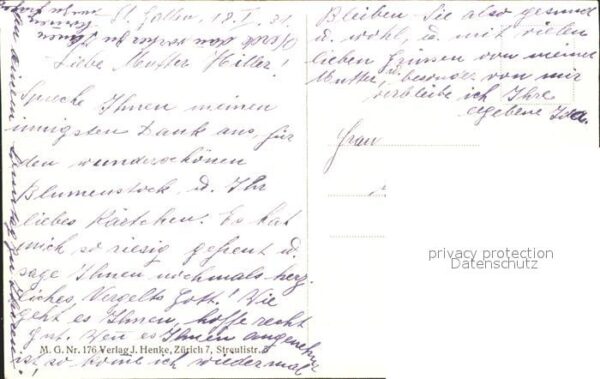 St. Gallen, 18. I. 31.
Liebe Mutter Hitler!
Spreche Ihnen meinen
innigsten Dank aus, für
den wunderschönen
Blumenstock u. Ihr
liebes Kärtchen. Es hat
mich so riesig gefreut u.
sage Ihnen nochmals herz-
liches, Vergelts Gott! Wie
geht es Ihnen, hoffe recht
gut. Wen es Ihnen angenehm
ist, so kome ich wiedermal
M. G. Nr. 176 Verlag J. Henke, Zürich 7, Streulistr.
Bleiben Sie also gesund
u. wohl, u. mit vielen
lieben Grüssen von meiner
Mutter, u. besonders von mir
verbleibe ich Ihre
ergebene Ida.
Frau
privacy protection
Datenschutz